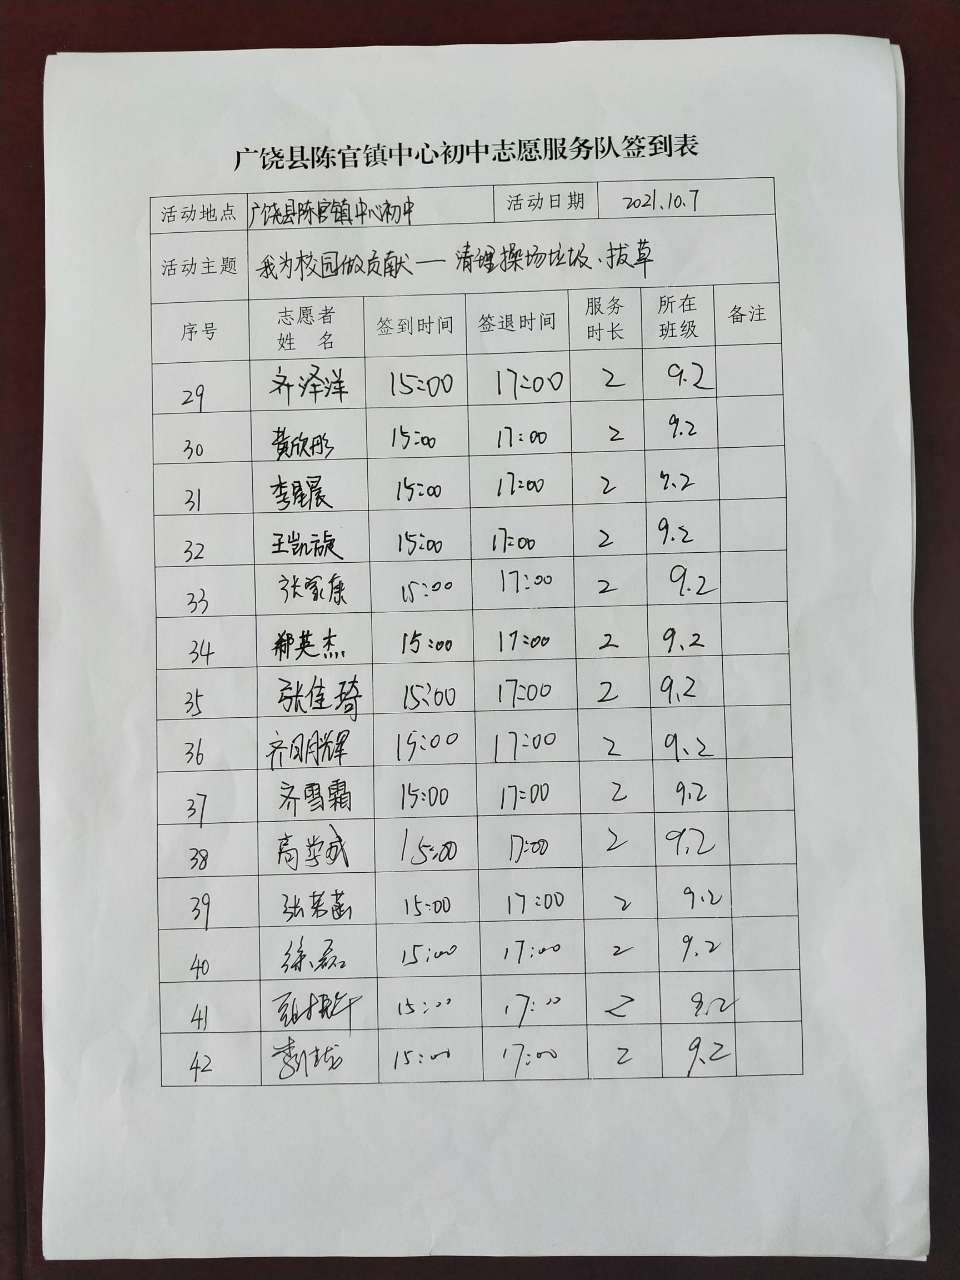 广饶县陈官镇中心初中志愿服务队签到表
活动地点 广饶县陈官镇中心初中 活动日期 2021.10.7
活动主题 我为校园做贡献——清理操场垃圾、拔草
序号 志愿者姓名 签到时间 签退时间 服务时长 所在班级 备注
29 齐泽洋 15:00 17:00 2 9.2
30 黄欣彤 15:00 17:00 2 9.2
31 李星晨 15:00 17:00 2 9.2
32 王凯旋 15:00 17:00 2 9.2
33 张家康 15:00 17:00 2 9.2
34 郑英杰 15:00 17:00 2 9.2
35 张佳琦 15:00 17:00 2 9.2
36 齐明辉 15:00 17:00 2 9.2
37 齐雪霜 15:00 17:00 2 9.2
38 高学成 15:00 17:00 2 9.2
39 张若菡 15:00 17:00 2 9.2
40 徐磊 15:00 17:00 2 9.2
41 15:00 17:00 2 9.2
42 15:00 17:00 2 9.2